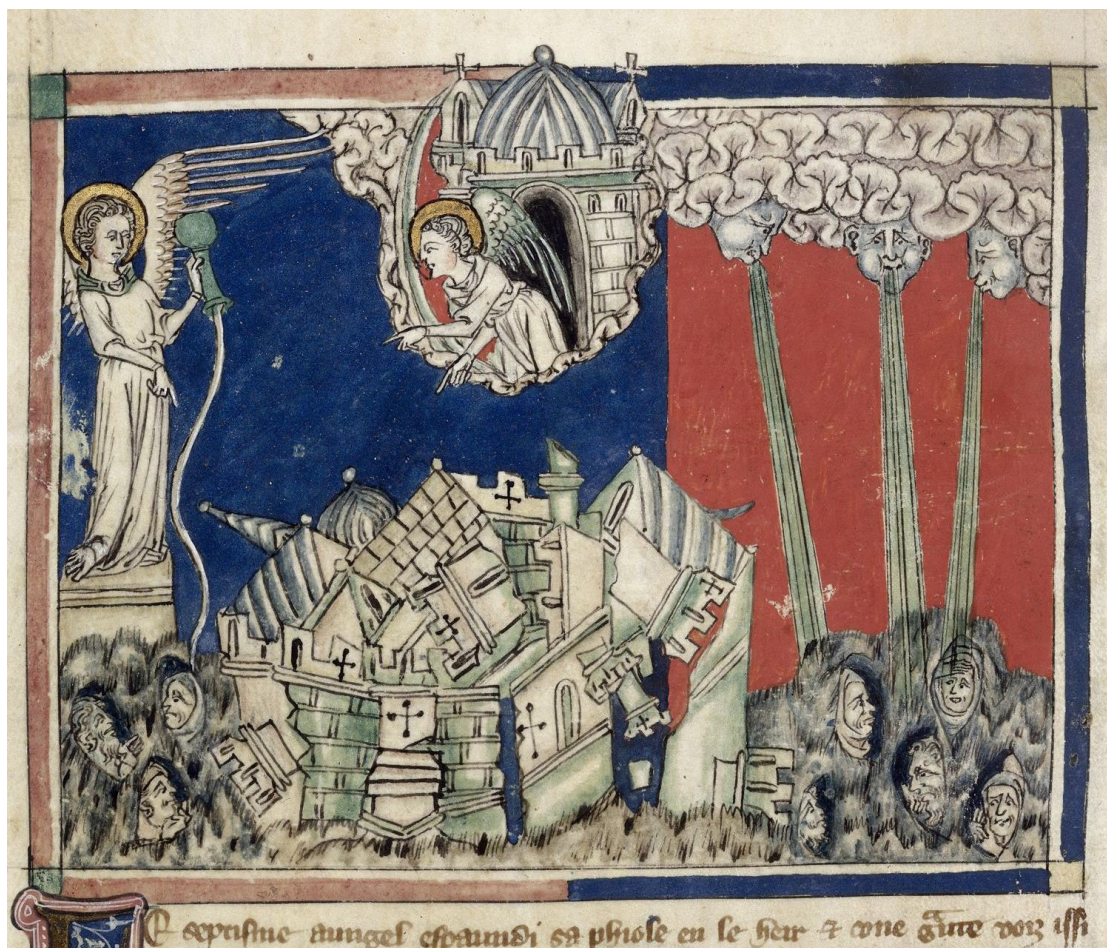 Le septisme aungel espaundi sa phiole en le heir & vne g̃nte voiz issi